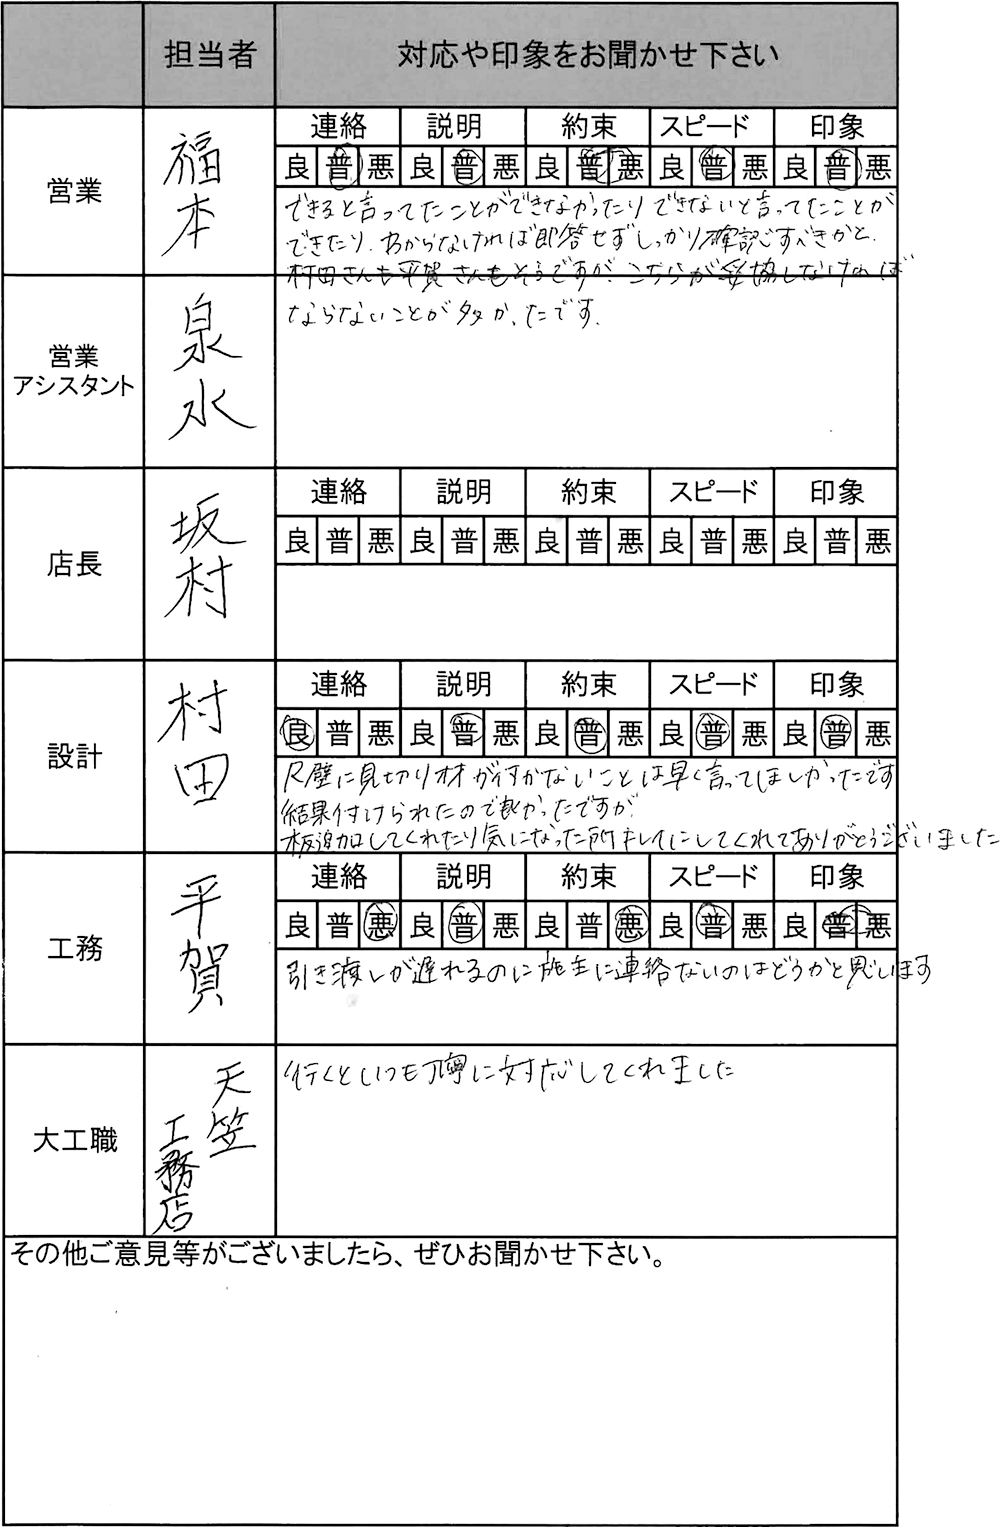 担当者 対応や印象をお聞かせ下さい
営業 福本
連絡 説明 約束 スピード 印象
良 普 悪 良 普 悪 良 普 悪 良 普 悪 良 普 悪
できると言ってたことができなかったりできないと言ってたことが
できたり、わからなければ即答せずしっかり確認すべきかと、
村田さんも平賀さんもそうですが、こちらが妥協しなければ
ならないことが多かったです。
営業
アシスタント
泉水
店長 坂村
連絡 説明 約束 スピード 印象
良 普 悪 良 普 悪 良 普 悪 良 普 悪 良 普 悪
設計 村田
連絡 説明 約束 スピード 印象
良 普 悪 良 普 悪 良 普 悪 良 普 悪 良 普 悪
R壁に見切り材が付かないことは早く言ってほしかったです
結果付けられたので良かったですが
板追加してくれたり気になった所キレイにしてくれてありがとうございました
工務 平賀
連絡 説明 約束 スピード 印象
良 普 悪 良 普 悪 良 普 悪 良 普 悪 良 普 悪
引き渡しが遅れるのに施主に連絡ないのはどうかと思います
大工職 天笠
工務店
行くといつも丁寧に対応してくれました
その他ご意見等がございましたら、ぜひお聞かせ下さい。